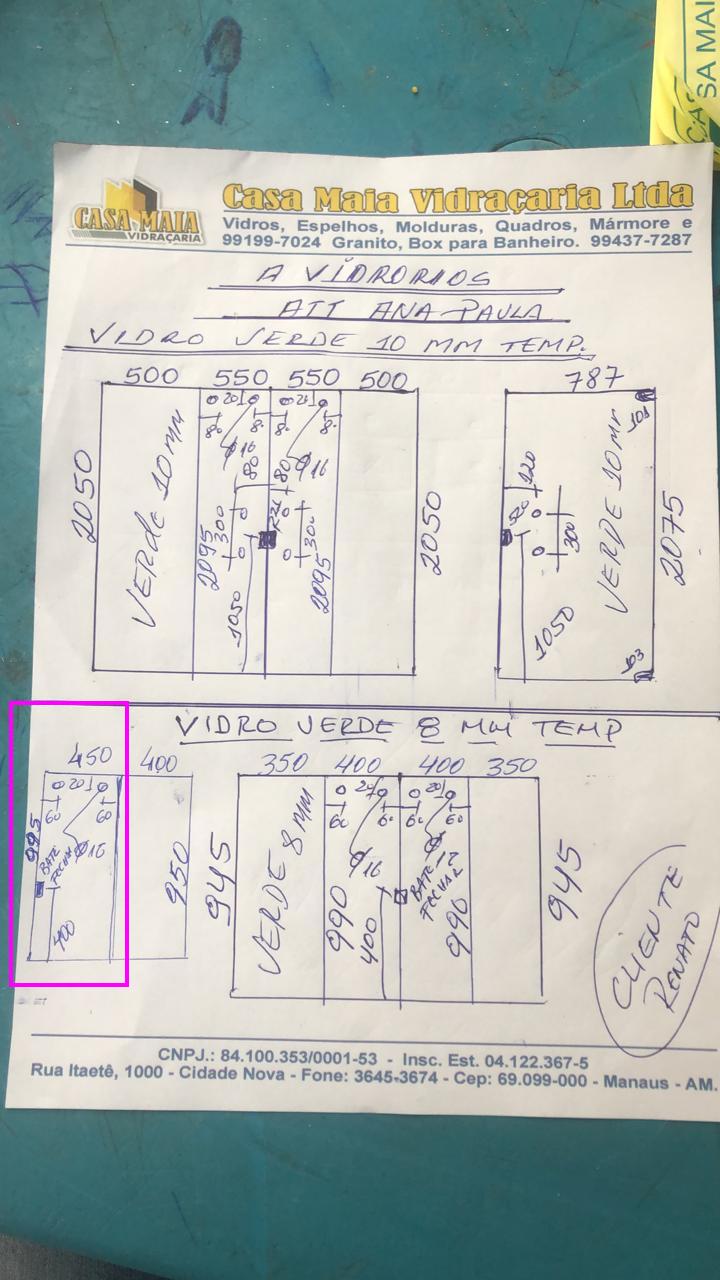 CASA MAIA
VIDRAÇARIA
Casa Maia Vidraçaria Ltda
Vidros, Espelhos, Molduras, Quadros, Mármore e
99199-7024 Granito, Box para Banheiro. 99437-7287
A VIDRORIOS
ATT ANA PAULA
VIDRO VERDE 10 MM TEMP.
500 550 550 500
2050
VERDE 10 MM
20
80 80
Ø16
80
300
2095
1050
20
80 80
Ø16
80
300
2095
2050
787
101
VERDE 10 MM
120
520
300
1050
103
2075
VIDRO VERDE 8 MM TEMP
450 400
995
20
60 60
Ø16
BATE
FECHA
400
950
350 400 400 350
945
VERDE 8 MM
20
60 60
Ø16
990
400
20
60 60
Ø
BATE
FECHAR
990
945
CLIENTE
RENATO
CNPJ.: 84.100.353/0001-53 - Insc. Est. 04.122.367-5
Rua Itaetê, 1000 - Cidade Nova - Fone: 3645-3674 - Cep: 69.099-000 - Manaus - AM.
SA MAI